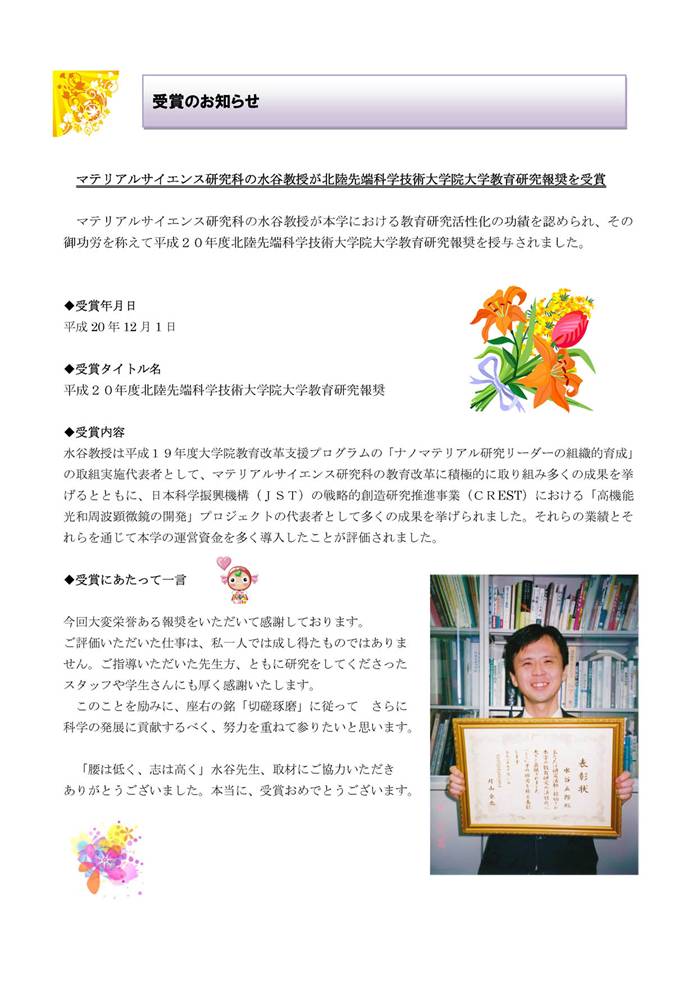 受賞のお知らせ
マテリアルサイエンス研究科の水谷教授が北陸先端科学技術大学院大学教育研究報奨を受賞
マテリアルサイエンス研究科の水谷教授が本学における教育研究活性化の功績を認められ、その
御功労を称えて平成２０年度北陸先端科学技術大学院大学教育研究報奨を授与されました。
◆受賞年月日
平成 20 年 12 月 1 日
◆受賞タイトル名
平成２０年度北陸先端科学技術大学院大学教育研究報奨
◆受賞内容
水谷教授は平成１９年度大学院教育改革支援プログラムの「ナノマテリアル研究リーダーの組織的育成」
の取組実施代表者として、マテリアルサイエンス研究科の教育改革に積極的に取り組み多くの成果を挙
げるとともに、日本科学振興機構（ＪＳＴ）の戦略的創造研究推進事業（ＣＲEST）における「高機能
光和周波顕微鏡の開発」プロジェクトの代表者として多くの成果を挙げられました。それらの業績とそ
れらを通じて本学の運営資金を多く導入したことが評価されました。
◆受賞にあたって一言
今回大変栄誉ある報奨をいただいて感謝しております。
ご評価いただいた仕事は、私一人では成し得たものではありま
せん。ご指導いただいた先生方、ともに研究をしてくださった
スタッフや学生さんにも厚く感謝いたします。
このことを励みに、座右の銘「切磋琢磨」に従って　さらに
科学の発展に貢献するべく、努力を重ねて参りたいと思います。
「腰は低く、志は高く」水谷先生、取材にご協力いただき
ありがとうございました。本当に、受賞おめでとうございます。
表彰状
水谷五郎殿